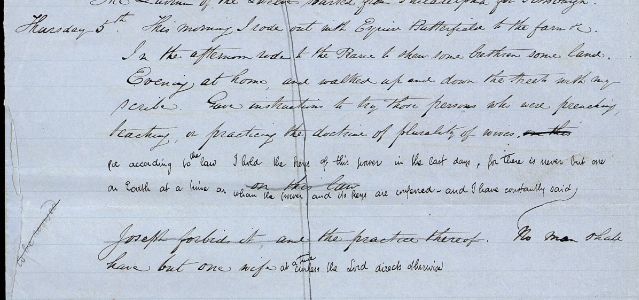 The Quorum of the Twelve started from Philadelphia for Pittsburgh.
Thursday 5th This morning I rode out with Esquire Butterfield to the farm &c
In the afternoon rode to the Prarie to shew some brethren some land.
Evening at home, and walked up and down the streets with my
scribe. Gave instructions to try those persons who were preaching,
teaching, or practicing the doctrine of plurality of wives, on this
for according to the law I hold the keys of this power in the last days, for there is never but one
on Earth at a time on whom the power and its keys are conferred - and I have constantly said
on this law
Joseph forbids it, and the practice thereof. No man shall
have but one wife at a time unless the Lord directs otherwise